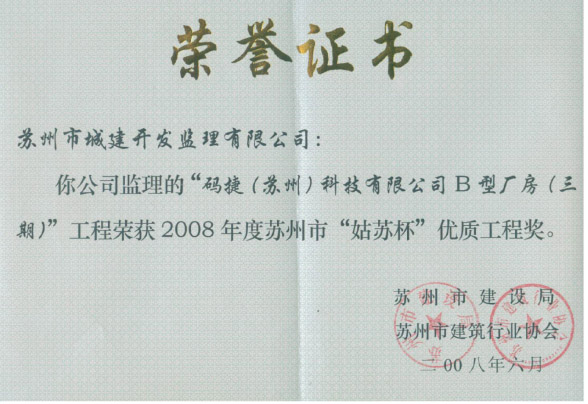 荣誉证书
苏州市城建开发监理有限公司：
你公司监理的“码捷（苏州）科技有限公司B型厂房（三
期）”工程荣获2008年度苏州市“姑苏杯”优质工程奖。
苏州市建设局
苏州市建筑行业协会
二00八年六月